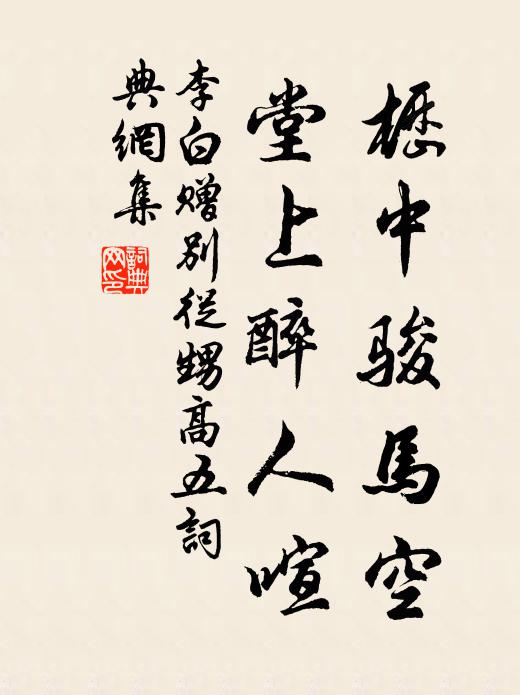 櫪中駿馬空
堂上醉人喧
李白贈別從甥高五詞
典網集
詞典
网印